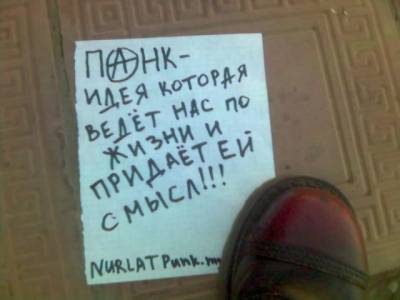 ПАНК-
ИДЕЯ КОТОРАЯ
ВЕДЁТ НАС ПО
ЖИЗНИ И
ПРИДАЁТ ЕЙ
СМЫСЛ!!!